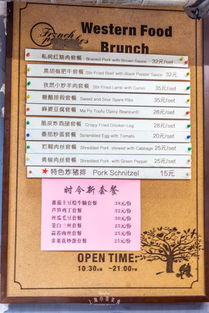 French Fry Peppers
Western Food
Brunch
私房红烧肉套餐 Braised Pork with Brown Sauce 32元/set
黑胡椒肥牛套餐 Stir-Fried Beef with Black Pepper Sauce 32元
孜然小炒羊肉套餐 Stir Fried Lamb with Cumin 35元/set
糖醋排骨套餐 Sweet and Sour Spare Ribs 35元/set
麻婆豆腐套餐 Ma Po Toufu (Spicy Beancurd) 28元/set
脆皮炸鸡腿套餐 Crispy Fried Chicken Leg 28元/set
番茄炒蛋套餐 Scrambled Egg with Tomato 20元/set
肉丝套餐 Shredded Pork stewed with Cabbage 25元/set
青椒肉丝套餐 Shredded Pork with Green Pepper 25元/set
特色炸猪排 Pork Schnitzel 15元
时令新套餐
番茄土豆烩牛腩套餐 38元/份
芦笋肉丁套餐 30元/份
丝瓜毛豆套餐 20元/份
茭白三丝套餐 28元/份
蒜苔肉丝套餐 25元/份
韭菜炒蛋套餐 25元/份
OPEN TIME:
10:30AM -21:00PM